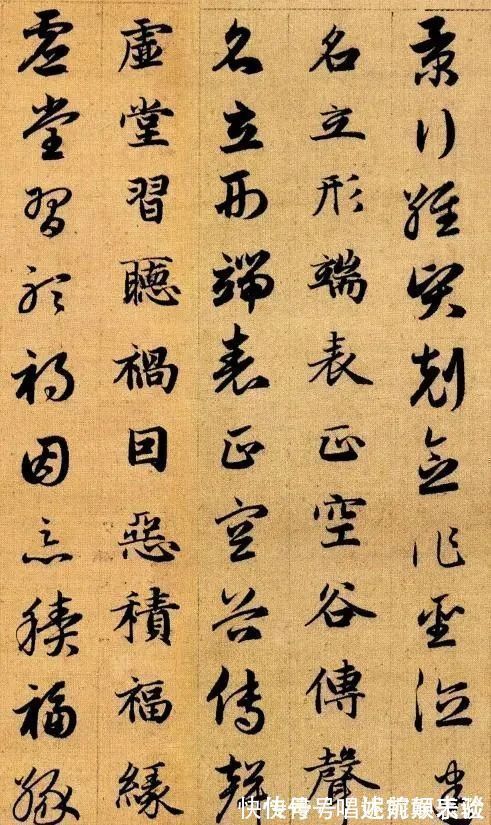 景行維賢剋念作聖德建
名立形端表正空谷傳聲
名立形端表正空谷傳聲
虛堂習聽禍因惡積福緣
虛堂習聽禍因惡積福緣
快传号